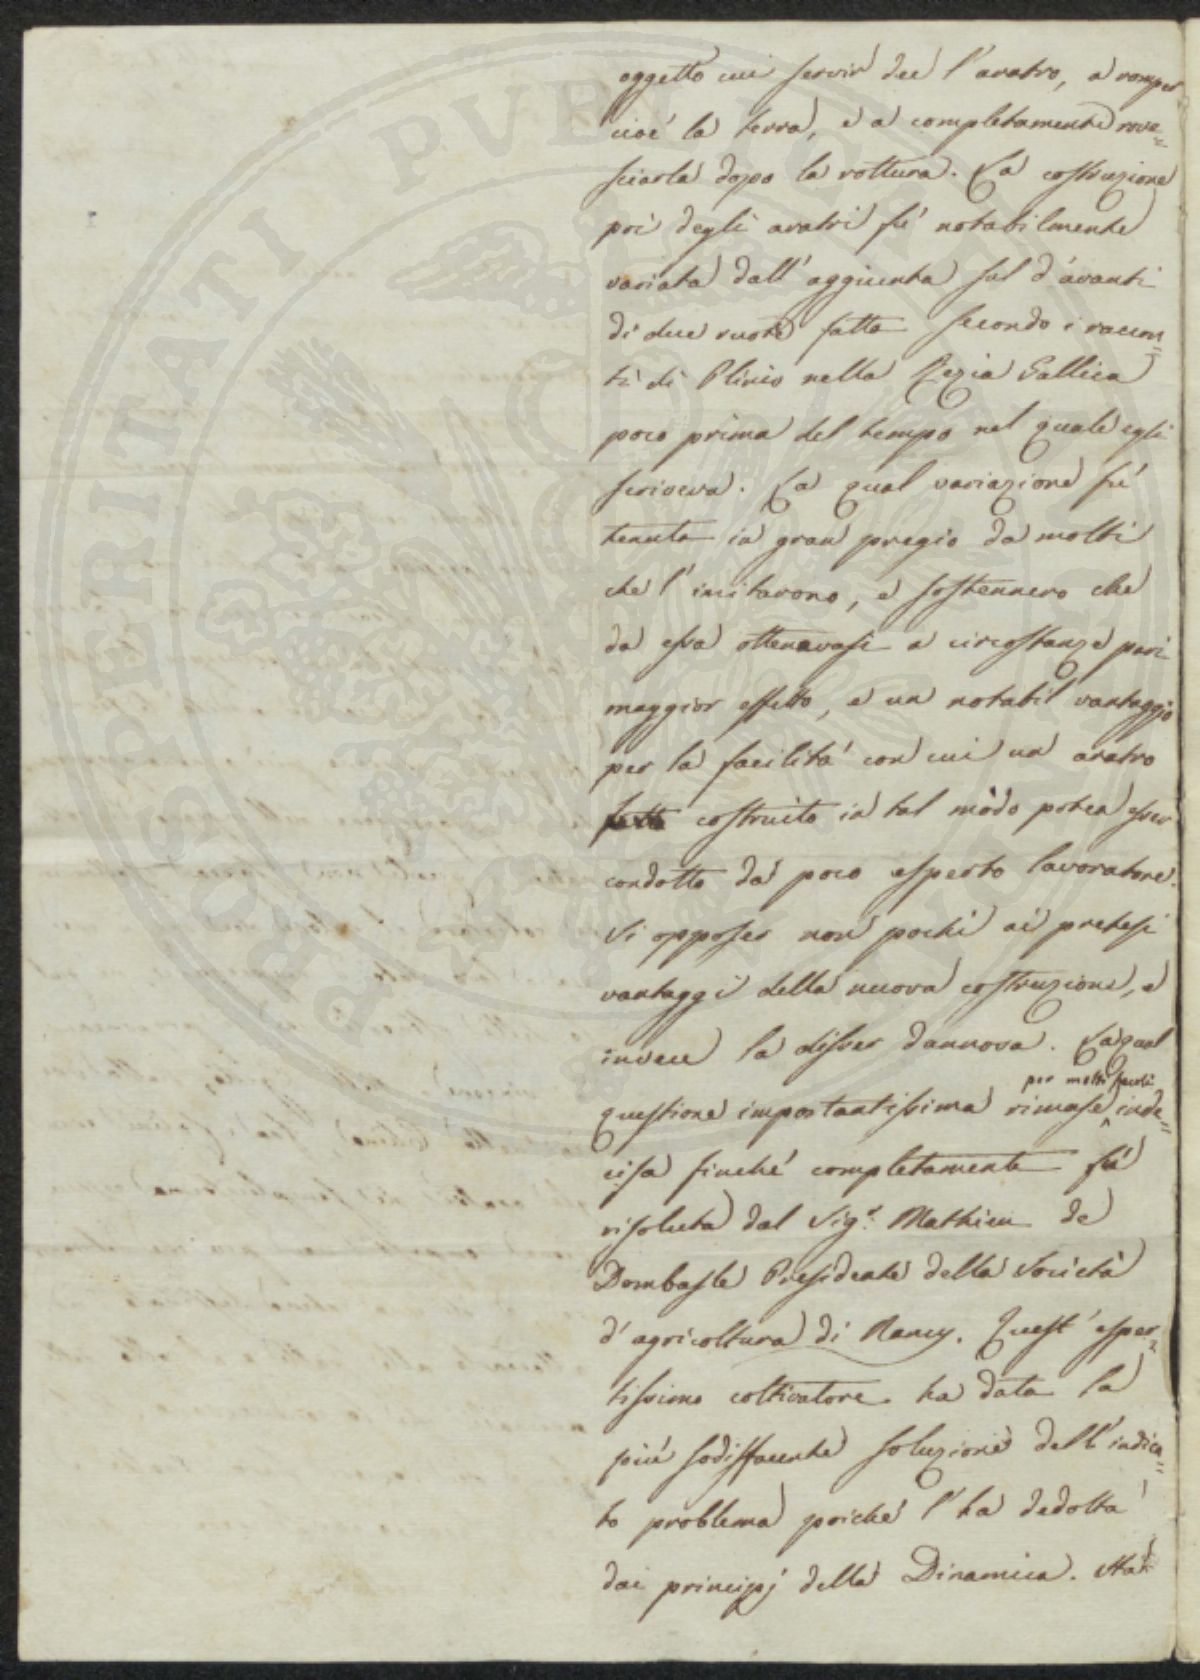 oggetto cui servir dee l'aratro, a romper
cioé la terra, e a completamente rove=
sciarla dopo la rottura. La costruzione
poi degli aratri fú notabilmente
variata dall'aggiunta sul d'avanti
di due ruote fatta secondo i raccon=
ti di Plinio nella Rezia Gallica
poco prima del tempo nel quale egli
scriveva. La qual variazione fú
tenuta in gran pregio da molti
che l'imitarono, e sostennero che
da essa ottenevasi a circostanze pari
maggior effetto, e un notabil vantaggio
per la facilitá con cui un aratro
costruito in tal modo potea esser
condotto da poco esperto lavoratore.
Si opposer non pochi ai pretesi
vantaggi della nuova costruzione, e
invece la disser dannosa. La qual
questione importantissima rimase per molti secoli inde=
cisa finché completamente fú
risoluta dal Sigr. Mathieu de
Dombasle Presidente della Societá
d'agricoltura di Nancy. Quest'esper=
tissimo coltivatore ha data la
piú sodisfacente soluzione dell'indica=
to problema poiché l'ha dedotta
dai principj della Dinamica.
PROSPERITATI PVBLICAE